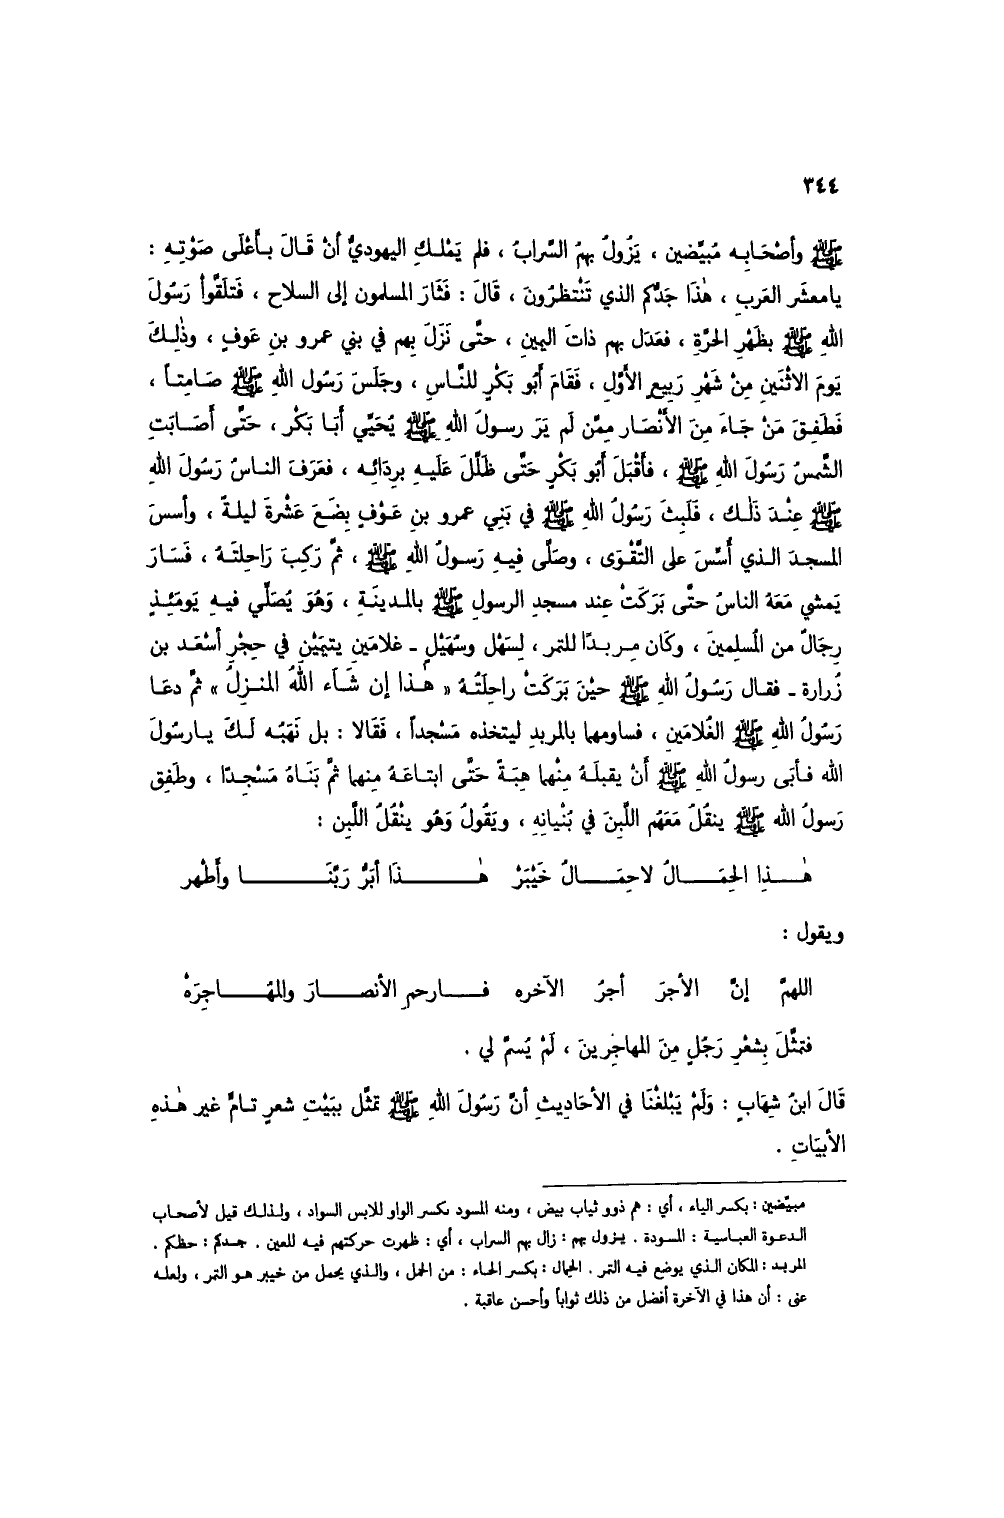 ٣٤٤
ﷺ وأصْحَابِه مُبيِّضين ، يَزُولُ بهِمُ السَّرابُ ، فلم يَمْلِكِ اليهوديُّ أنْ قَالَ بِأَعْلَى صَوْتِهِ :
يامعشَر العَربِ ، هٰذَا جَدُّكم الذي تَنْتظرُونَ ، قَالَ : فَثَارَ المسلمون إلى السلاح ، فَتلَقَّواْ رَسُولَ
اللهِ ﷺ بظَهْرِ الحرَّةِ ، فعَدَل بهم ذاتَ اليمين ، حتَّى نَزَلَ بِهم في بني عمرو بنِ عَوفٍ ، وذٰلِكَ
يَومَ الاثْنَينِ مِنْ شَهْرِ رَبيعٍ الأوّلِ ، فَقَامَ أَبُو بَكْرٍ للنَّاسِ ، وجَلَسَ رَسُول اللهِ ﷺ صَامِتاً ،
فَطَفِقَ مَنْ جَاءَ مِنَ الأَنْصَار ممَّن لَم يَرَ رسولَ اللهِ ﷺ يُحَيِّي أَبَا بَكْر ، حَتَّى أَصَابَت
الشَّمسُ رَسُولَ اللهِ ﷺ ، فأَقْبَلَ أَبُو بَكْرٍ حَتَّى ظَلَّلَ عَلَيهِ بردَائِه ، فعَرَفَ الناسُ رَسُولَ اللهِ
ﷺ عِنْدَ ذَلك ، فَلَبِثَ رَسُولُ اللهِ ﷺ في بَنِي عمرو بنِ عَوْفٍ بِضَعَ عَشْرةَ ليلةً ، وأسسَ
المسجدَ الذي أُسِّسَ على التَّقْوَى ، وصَلَّى فِيهِ رَسولُ اللهِ ﷺ ، ثمَّ رَكِبَ رَاحِلتَهُ ، فَسَارَ
يَمشي مَعَهُ الناسُ حتَّى بَرَكَتْ عِند مسجدِ الرسولِ ﷺ بالمدينَةِ ، وَهُوَ يُصَلِّي فيهِ يَومَئذٍ
رِجَالٌ من المُسلِمينَ ، وكَان مِربدًا للتمر ، لِسَهْل وسُهَيْلٍ ـ غلامَين يتيمَيْن في حِجْرِ أسْعَد بن
زُرارة ـ فقال رَسُولُ اللهِ ﷺ حيْنَ بَرَكَتْ راحلَتُهُ « هٰذا إن شَاءَ اللهُ المنزلُ » ثمَّ دعَا
رَسُولُ اللهِ ﷺ الغُلامَين ، فساومهما بالمربدِ ليتخذه مَسْجداً ، فَقَالا : بل نَهَبُه لَكَ يارسُولَ
الله فأبَى رسولُ اللهِ ﷺ أَنْ يقبلَهُ مِنْهما هِبَةً حَتَّى ابتاعَهُ مِنهما ثمَّ بَنَاهُ مَسْجدًا ، وطَفِق
رَسولُ الله ﷺ ينقُلُ مَعَهُم اللَّبِنَ في بُنْيانِهِ ، ويَقُولُ وَهُو ينْقُلُ اللَّبِن :
هٰذِا الحِمَالُ لاحِمَالُ خَيْبَرْ هٰذَا أبَرُّ رَبَّنَا وأَطْهر
ويقول :
اللهمَّ إنَّ الأجرَ أجرُ الآخره فارحمِ الأنصارَ والمهَاجِرَهْ
فتمثَّلَ بِشعْرِ رَجُلٍ مِنَ المهاجَرينَ ، لَمْ يُسمَّ لي .
قَالَ ابنُ شِهَابٍ : وَلَمْ يَبْلغْنَا في الأحَادِيثِ أنَّ رَسُولَ اللهِ ﷺ تمثَّل ببَيْتِ شعرٍ تامٍّ غير هٰذهِ
الأبيَاتِ .
مبيّضين : بكسر الياء ، أي : هم ذوو ثياب بيض ، ومنه المسود بكسر الواو للابس السواد ، ولذلك قيل لأصحاب
الدعوة العباسية : المسودة . يزول بهم : زال بهم السراب ، أي : ظهرت حركتهم فيه للعين . جدكم : حظكم .
المربد : المكان الذي يوضع فيه التمر . الحمال : بكسر الحاء : من الحمل ، والذي يحمل من خيبر هو التمر ، ولعله
عنى : أن هذا في الآخرة أفضل من ذلك ثواباً وأحسن عاقبة .